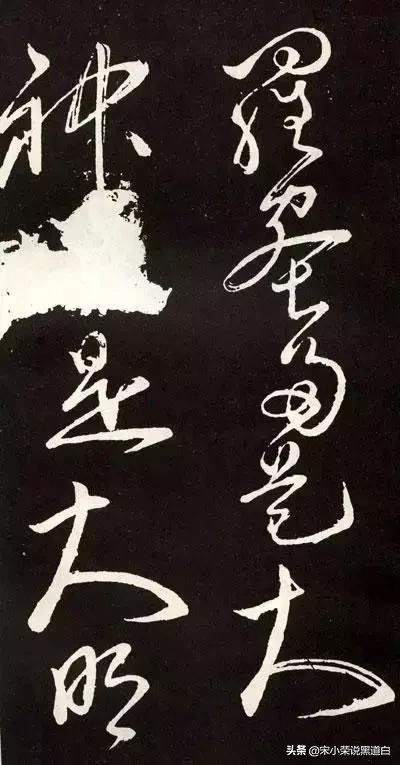 羅蜜多是大
神是大明
头条 @宋小荣说黑道白